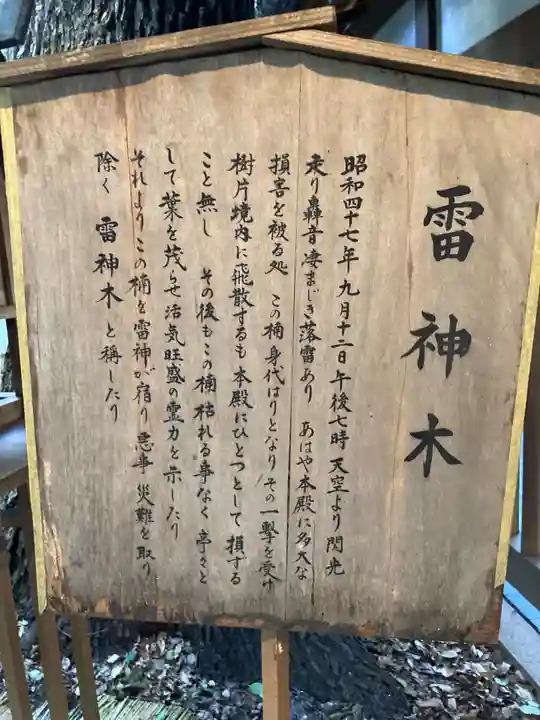 雷神木
昭和四十七年九月十二日午後七時 天空より閃光
走り轟音凄まじき落雷あり あはや本殿に多大な
損害を被る処 この楠身代はりとなり その一撃を受け
樹片境内に飛散するも本殿にひとつとして損する
こと無し その後もこの楠枯れる事なく 亭々と
して葉を茂らせ活気旺盛の霊力を示したり
それよりこの楠を雷神が宿り 悪事災難を取り
除く 雷神木と稱したり